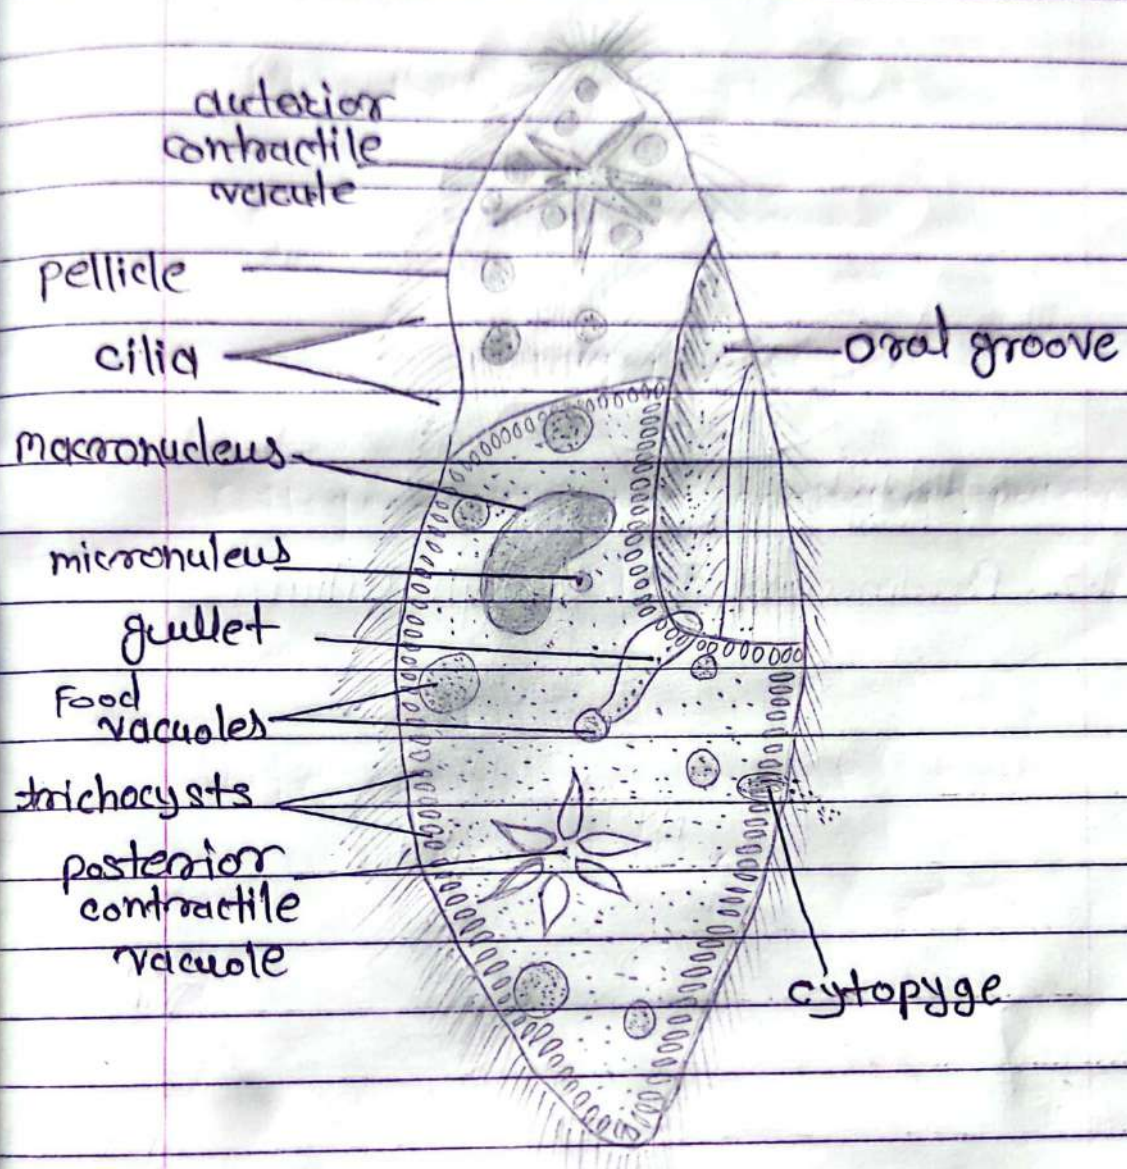 anterior
contractile
vacule
pellicle
cilia
oral groove
macronucleus
micronuleus
gullet
Food
vacuoles
trichocysts
posterior
contractile
vacuole
cytopyge